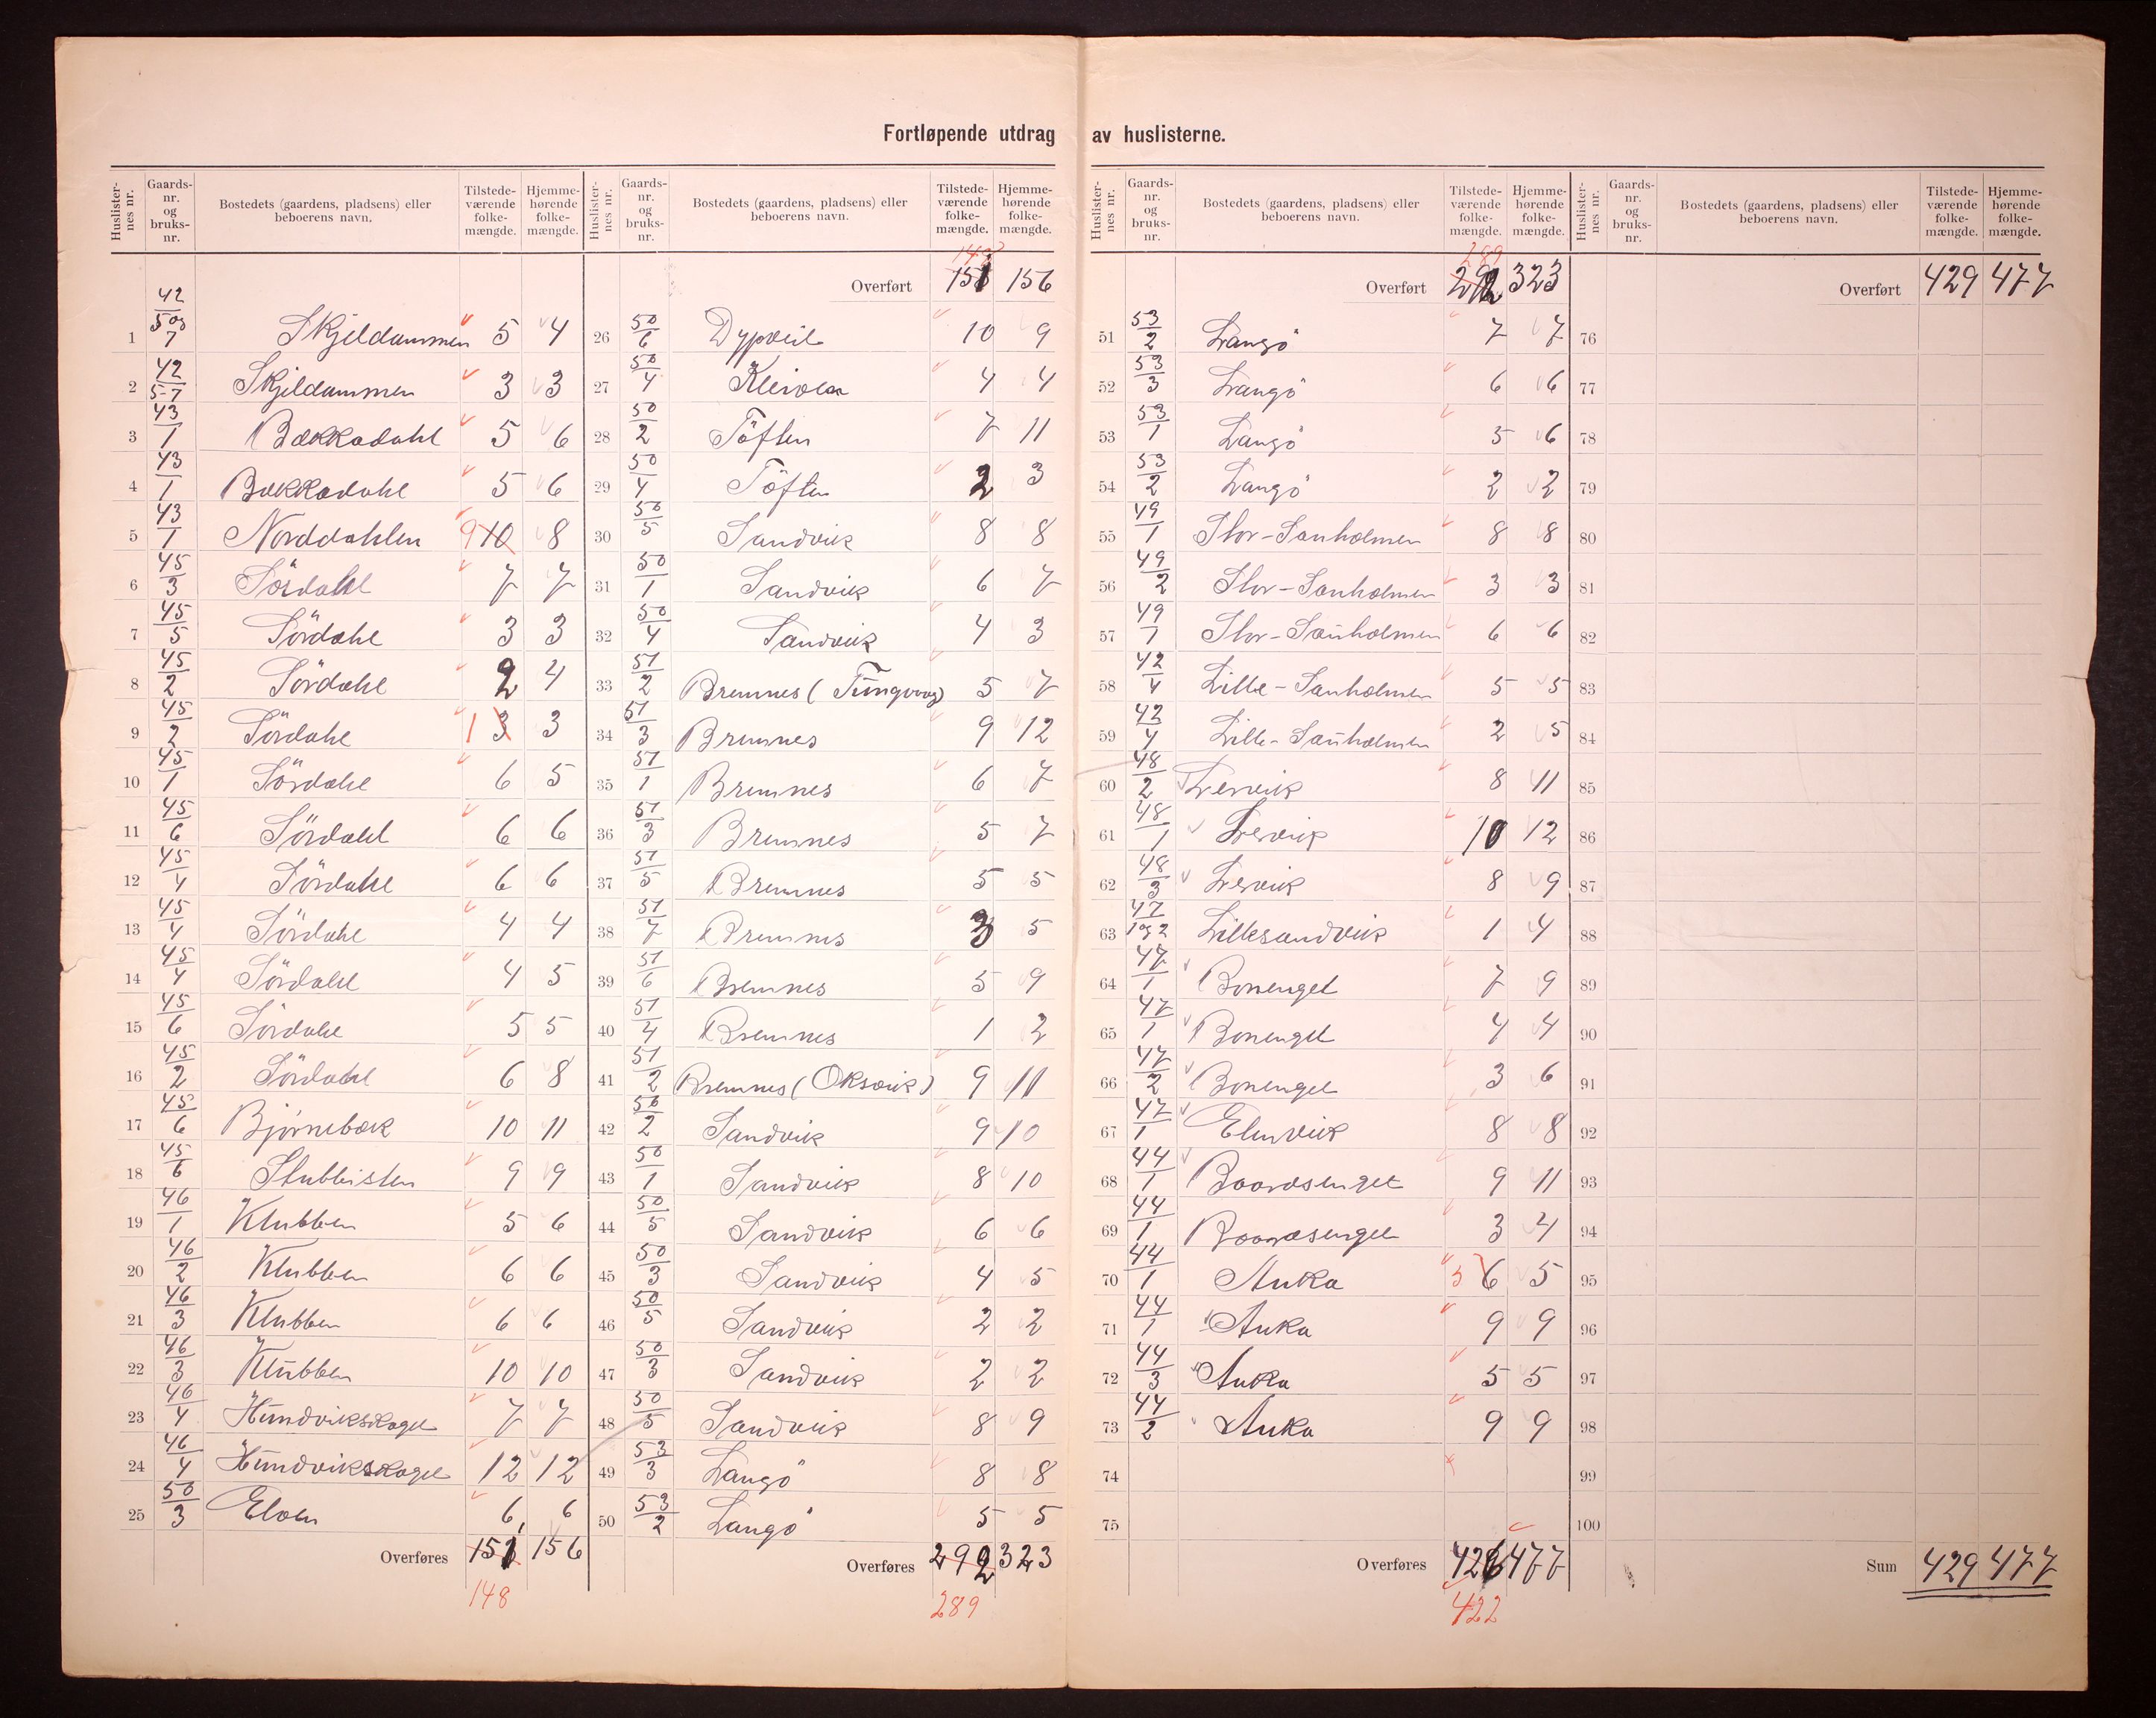 Fortløpende utdrag av huslisterne.
Huslister-nes nr. Gaards-nr. og bruks-nr. Bostedets (gaardens, pladsens) eller beboerens navn. Tilstede-værende folke-mængde. Hjemme-hørende folke-mængde.
1 42/5og7 Skjeldammen 5 4
2 42/5-7 Skjeldammen 3 3
3 43/1 Bækkadahl 5 6
4 43/1 Bækkadahl 5 6
5 43/1 Norddahlen 9 10 8
6 45/3 Sördahl 7 7
7 45/5 Sördahl 3 3
8 45/2 Sördahl 2 4
9 45/2 Sördahl 1 3 3
10 45/1 Sördahl 6 5
11 45/6 Sördahl 6 6
12 45/4 Sördahl 6 6
13 45/4 Sördahl 4 4
14 45/4 Sördahl 4 5
15 45/6 Sördahl 5 5
16 45/2 Sördahl 6 8
17 45/6 Bjørnebæk 10 11
18 45/6 Stubbisten 9 9
19 46/1 Klubben 5 6
20 46/2 Klubben 6 6
21 46/3 Klubben 6 6
22 46/3 Klubben 10 10
23 46/4 Hundvikskaget 7 7
24 46/4 Hundvikskaget 12 12
25 50/3 Elven 6 6
Overføres 151 156
148
Huslister-nes nr. Gaards-nr. og bruks-nr. Bostedets (gaardens, pladsens) eller beboerens navn. Tilstede-værende folke-mængde. Hjemme-hørende folke-mængde.
148
Overført 151 156
26 50/6 Dypveik 10 9
27 50/4 Kleiven 4 4
28 50/2 Töften 7 11
29 50/4 Töften 2 3
30 50/5 Sandvik 8 8
31 50/1 Sandvik 6 7
32 50/4 Sandvik 4 3
33 51/2 Bremnes (Tungvaag) 5 7
34 51/3 Bremnes 9 12
35 51/1 Bremnes 6 7
36 51/3 Bremnes 5 7
37 51/5 Bremnes 5 5
38 51/7 Bremnes 3 5
39 51/6 Bremnes 5 9
40 51/4 Bremnes 1 2
41 51/2 Bremnes (Oksvik) 9 11
42 50/2 Sandvik 9 10
43 50/1 Sandvik 8 10
44 50/5 Sandvik 6 6
45 50/3 Sandvik 4 5
46 50/5 Sandvik 2 2
47 50/3 Sandvik 2 2
48 50/5 Sandvik 8 9
49 53/3 Langö 8 8
50 53/2 Langö 5 5
Overføres 292 323
289
Huslister-nes nr. Gaards-nr. og bruks-nr. Bostedets (gaardens, pladsens) eller beboerens navn. Tilstede-værende folke-mængde. Hjemme-hørende folke-mængde.
289
Overført 292 323
51 53/2 Langö 7 7
52 53/3 Langö 6 6
53 53/1 Langö 5 6
54 53/2 Langö 2 2
55 49/1 Stor-Sanholmen 8 8
56 49/2 Stor-Sanholmen 3 3
57 49/1 Stor-Sanholmen 6 6
58 42/4 Lille-Sanholmen 5 5
59 42/4 Lille-Sanholmen 2 5
60 48/2 Lervik 8 11
61 48/1 Lervik 10 12
62 48/3 Lervik 8 9
63 47/1og2 Lillesandvik 1 4
64 47/1 Bonenget 7 9
65 47/1 Bonenget 4 4
66 47/2 Bonenget 3 6
67 47/1 Elvevik 8 8
68 44/1 Baardsenget 9 11
69 44/1 Baardsenget 3 4
70 44/1 Anka 5 6 5
71 44/1 Anka 9 9
72 44/3 Anka 5 5
73 44/2 Anka 9 9
74
75
Overføres 426 477
422
Huslister-nes nr. Gaards-nr. og bruks-nr. Bostedets (gaardens, pladsens) eller beboerens navn. Tilstede-værende folke-mængde. Hjemme-hørende folke-mængde.
Overført 429 477
76
77
78
79
80
81
82
83
84
85
86
87
88
89
90
91
92
93
94
95
96
97
98
99
100
Sum 429 477